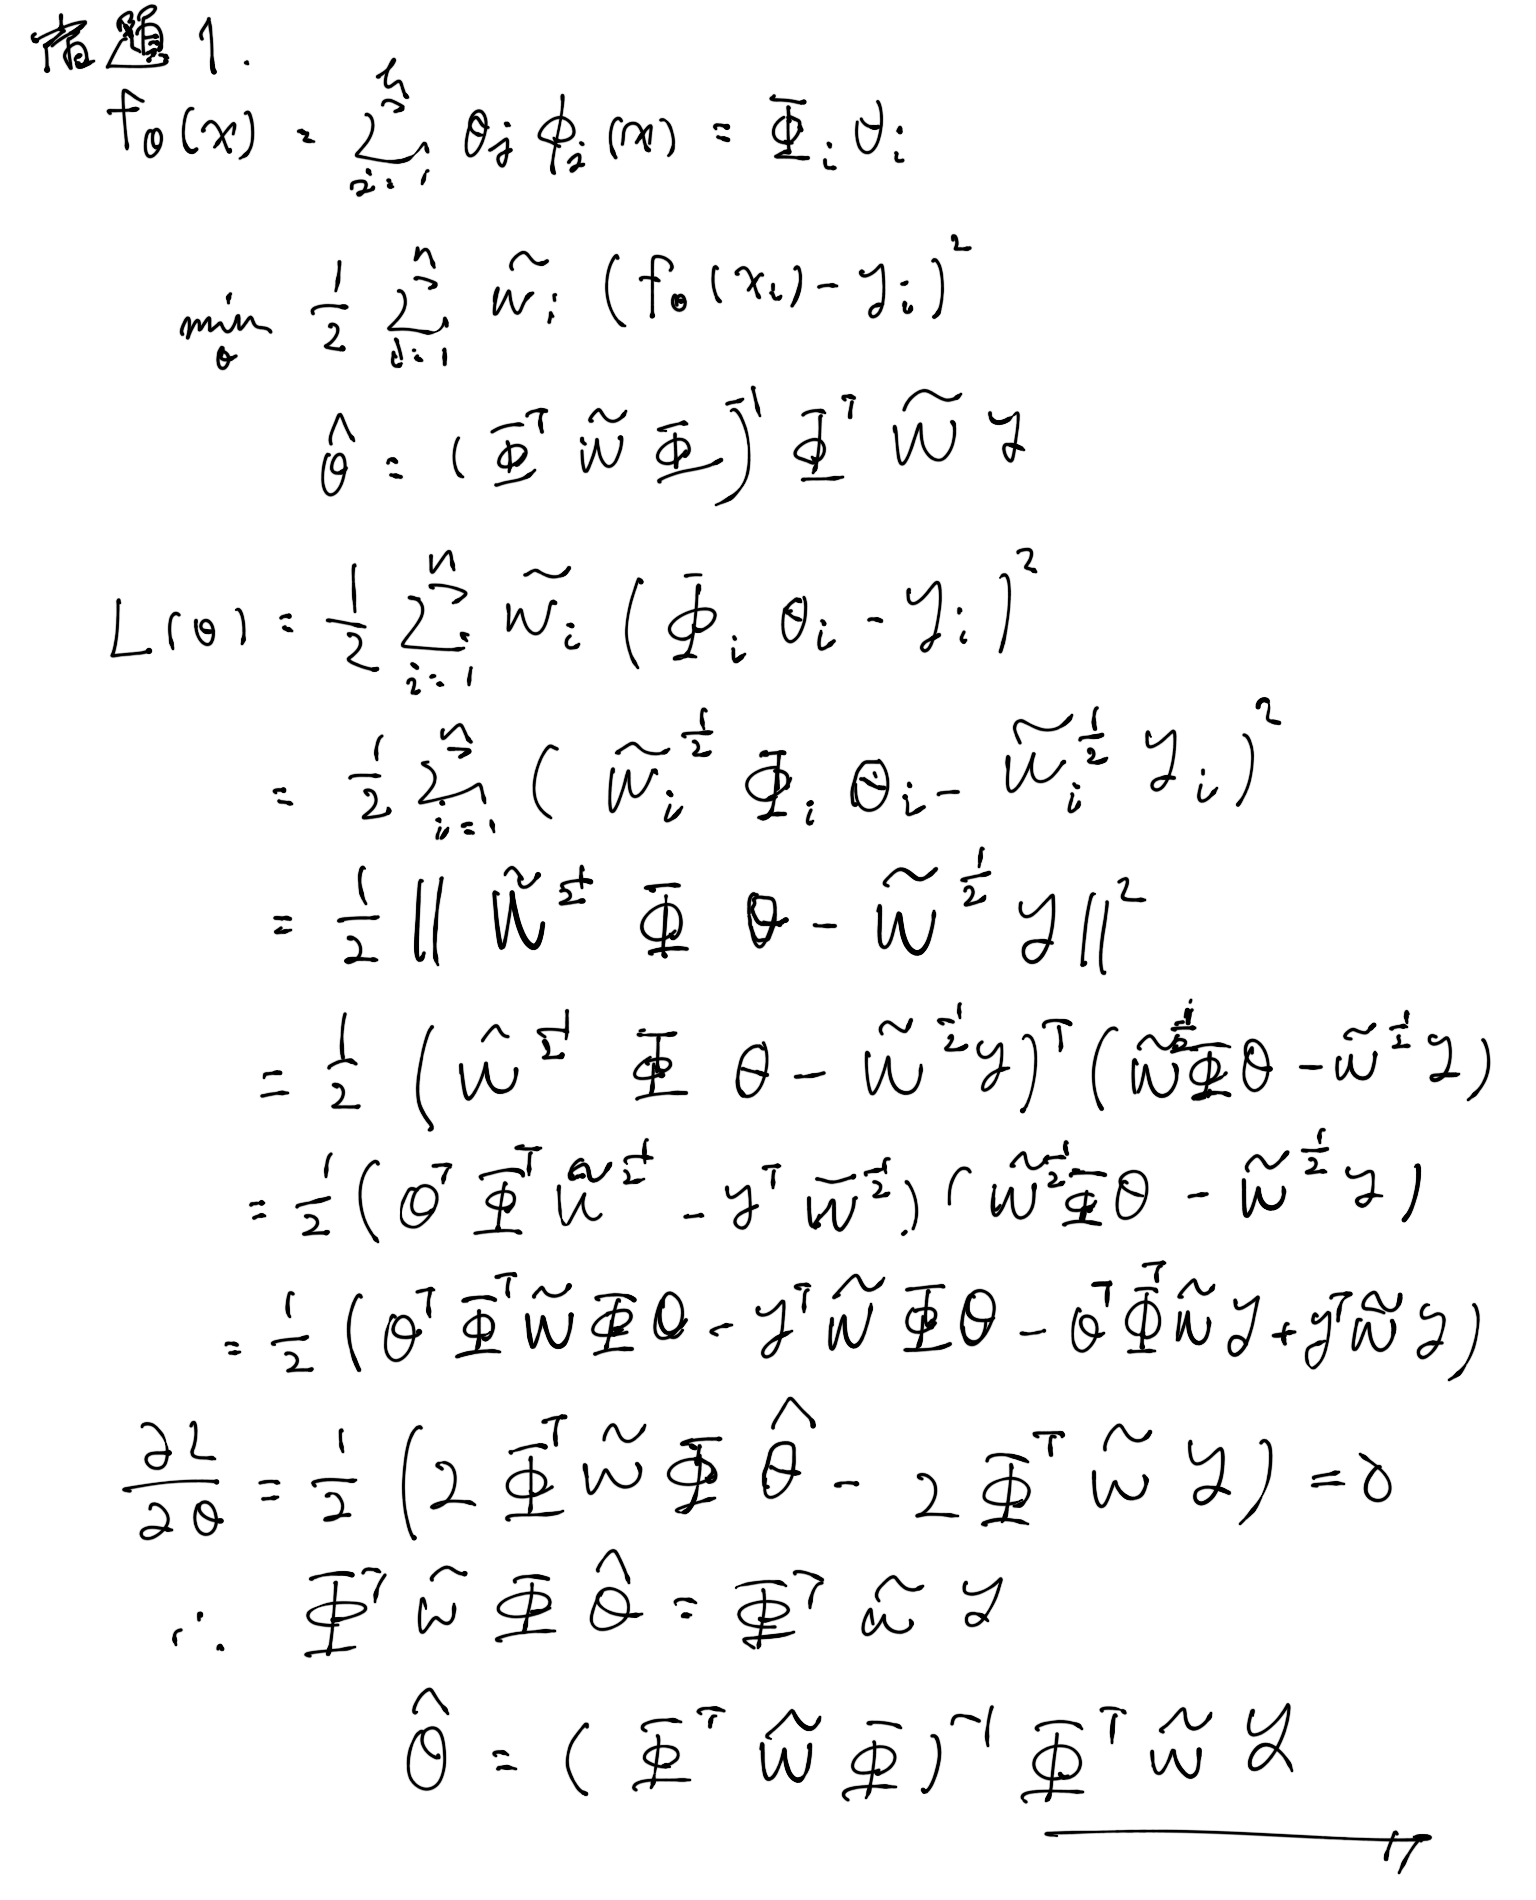 宿題 1.
f_θ(x) = Σ_{j=1}^{b} θ_j φ_j(x) = Φ_i θ_i
min_θ 1/2 Σ_{i=1}^{n} w̃_i (f_θ(x_i) - y_i)^2
θ̂ = (Φ^T W̃ Φ)^{-1} Φ^T W̃ y
L(θ) = 1/2 Σ_{i=1}^{n} w̃_i (Φ_i θ_i - y_i)^2
= 1/2 Σ_{i=1}^{n} (w̃_i^{1/2} Φ_i θ_i - w̃_i^{1/2} y_i)^2
= 1/2 || W̃^{1/2} Φ θ - W̃^{1/2} y ||^2
= 1/2 (W̃^{1/2} Φ θ - W̃^{1/2} y)^T (W̃^{1/2} Φ θ - W̃^{1/2} y)
= 1/2 (θ^T Φ^T W̃^{1/2} - y^T W̃^{1/2}) (W̃^{1/2} Φ θ - W̃^{1/2} y)
= 1/2 (θ^T Φ^T W̃ Φ θ - y^T W̃ Φ θ - θ^T Φ^T W̃ y + y^T W̃ y)
∂L/∂θ = 1/2 (2 Φ^T W̃ Φ θ̂ - 2 Φ^T W̃ y) = 0
∴ Φ^T W̃ Φ θ̂ = Φ^T W̃ y
θ̂ = (Φ^T W̃ Φ)^{-1} Φ^T W̃ y